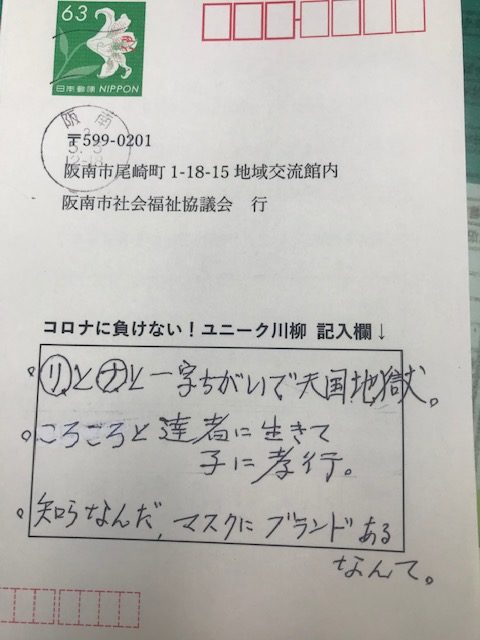 63
日本郵便 NIPPON
阪南
〒599-0201
阪南市尾崎町 1-18-15 地域交流館内
阪南市社会福祉協議会 行
コロナに負けない！ユニーク川柳 記入欄↓
。リとナと一字ちがいで天国地獄。
。ころころと達者に生きて
子に孝行。
。知らなんだ,マスクにブランドある
なんて。